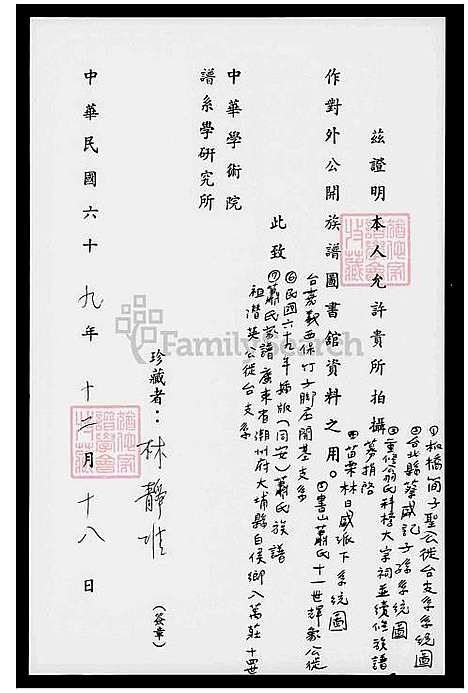 茲證明本人允許貴所拍攝
①板橋簡子聖公徙台支系系統圖
②台北縣蔡威記子孫系統圖
③重修翁氏科榜大宗祠並續修族譜
募捐啓
④苗栗林日威派下系統圖
⑤書山蕭氏十一世輝象公徙
台嘉義西保竹子腳庄開基支系
⑥民國六十九年歸版(同安)蕭氏族譜
⑦蕭氏家譜廣東省潮州府大埔縣白侯鄉入萬莊十四世
祖潛英公徙台支系
作對外公開族譜圖書館資料之用。
此致
中華學術院
譜系學研究所
珍藏者:林靜
(簽章)
中華民國六十九年十二月十八日
FamilySearch